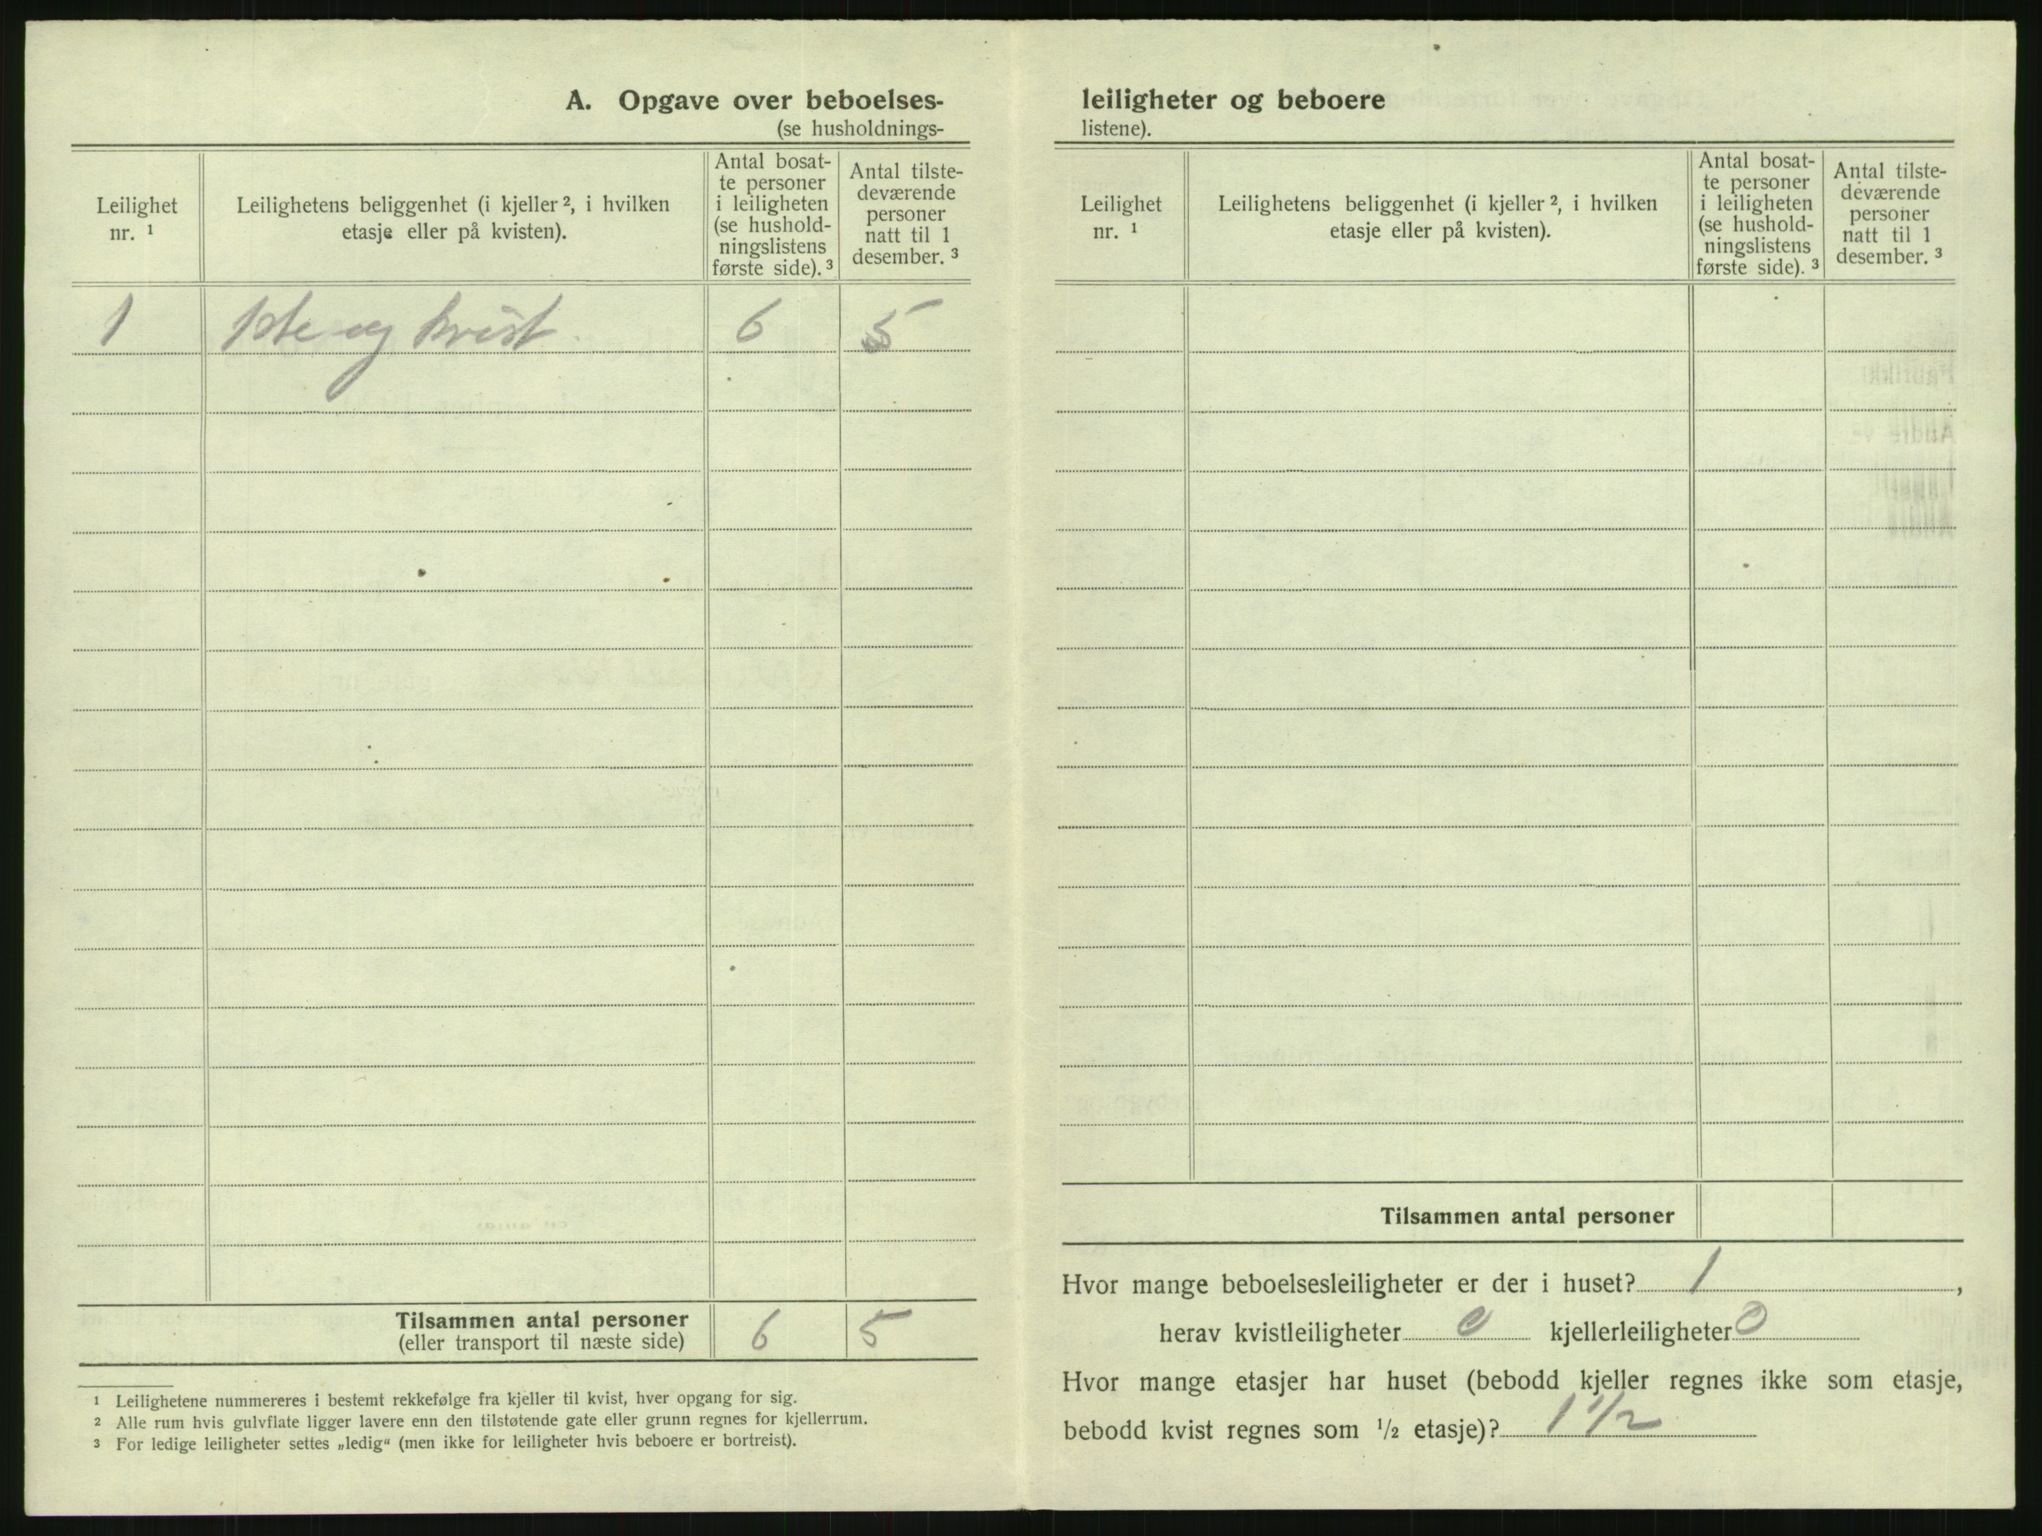 A. Opgave over beboelses-
(se husholdnings-
Leilighet
nr. 1
Leilighetens beliggenhet (i kjeller 2, i hvilken
etasje eller på kvisten).
Antal bosat-
te personer
i leiligheten
(se hushold-
ningslistens
første side). 3
Antal tilste-
deværende
personer
natt til 1
desember. 3
1 1ste og kvist 6 5
Tilsammen antal personer
(eller transport til næste side) 6 5
1 Leilighetene nummereres i bestemt rekkefølge fra kjeller til kvist, hver opgang for sig.
2 Alle rum hvis gulvflate ligger lavere enn den tilstøtende gate eller grunn regnes for kjellerrum.
3 For ledige leiligheter settes „ledig“ (men ikke for leiligheter hvis beboere er bortreist).
leiligheter og beboere
listene).
Leilighet
nr. 1
Leilighetens beliggenhet (i kjeller 2, i hvilken
etasje eller på kvisten).
Antal bosat-
te personer
i leiligheten
(se hushold-
ningslistens
første side). 3
Antal tilste-
deværende
personer
natt til 1
desember. 3
Tilsammen antal personer
Hvor mange beboelsesleiligheter er der i huset? 1,
herav kvistleiligheter 0 kjellerleiligheter 0
Hvor mange etasjer har huset (bebodd kjeller regnes ikke som etasje,
bebodd kvist regnes som 1/2 etasje)? 1 1/2